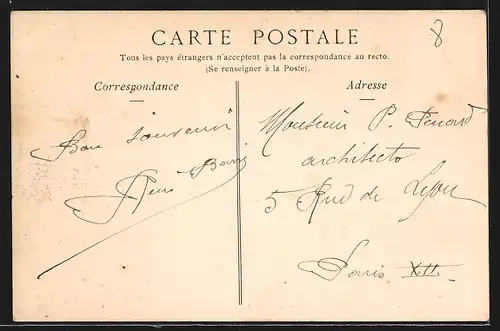 8
CARTE POSTALE
Tous les pays étrangers n'acceptent pas la correspondance au recto.
(Se renseigner à la Poste).
Correspondance
Adresse
Bon souvenir
René
Monsieur P. Penard
architecte
5 Rue de Lyon
Paris XII